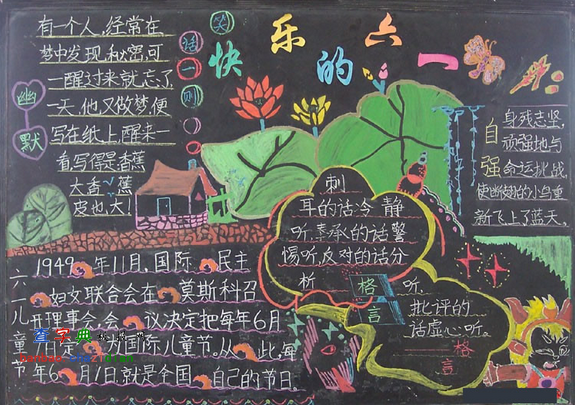 快乐的六一
笑话一则
幽默
有一个人,经常在
梦中发现秘密,可
一醒过来就忘了,
一天,他又做梦,便
写在纸上,醒来一
看,写得是香蕉
大香蕉
皮也大!
自强
身残志坚,
顽强地与
命运挑战,
使幽傲的小乌重
新飞上了蓝天。
刺
耳的话冷静
听,奉承的话警
惕听,反对的话分
析听.
格言
批评的
话虚心听。
格言
六一儿童节
1949年11月,国际民主
妇女联合会在莫斯科召
开理事会,会议决定把每年6月
1日定为国际儿童节。从此,每
年6月1日就是全国自己的节日。
查字典